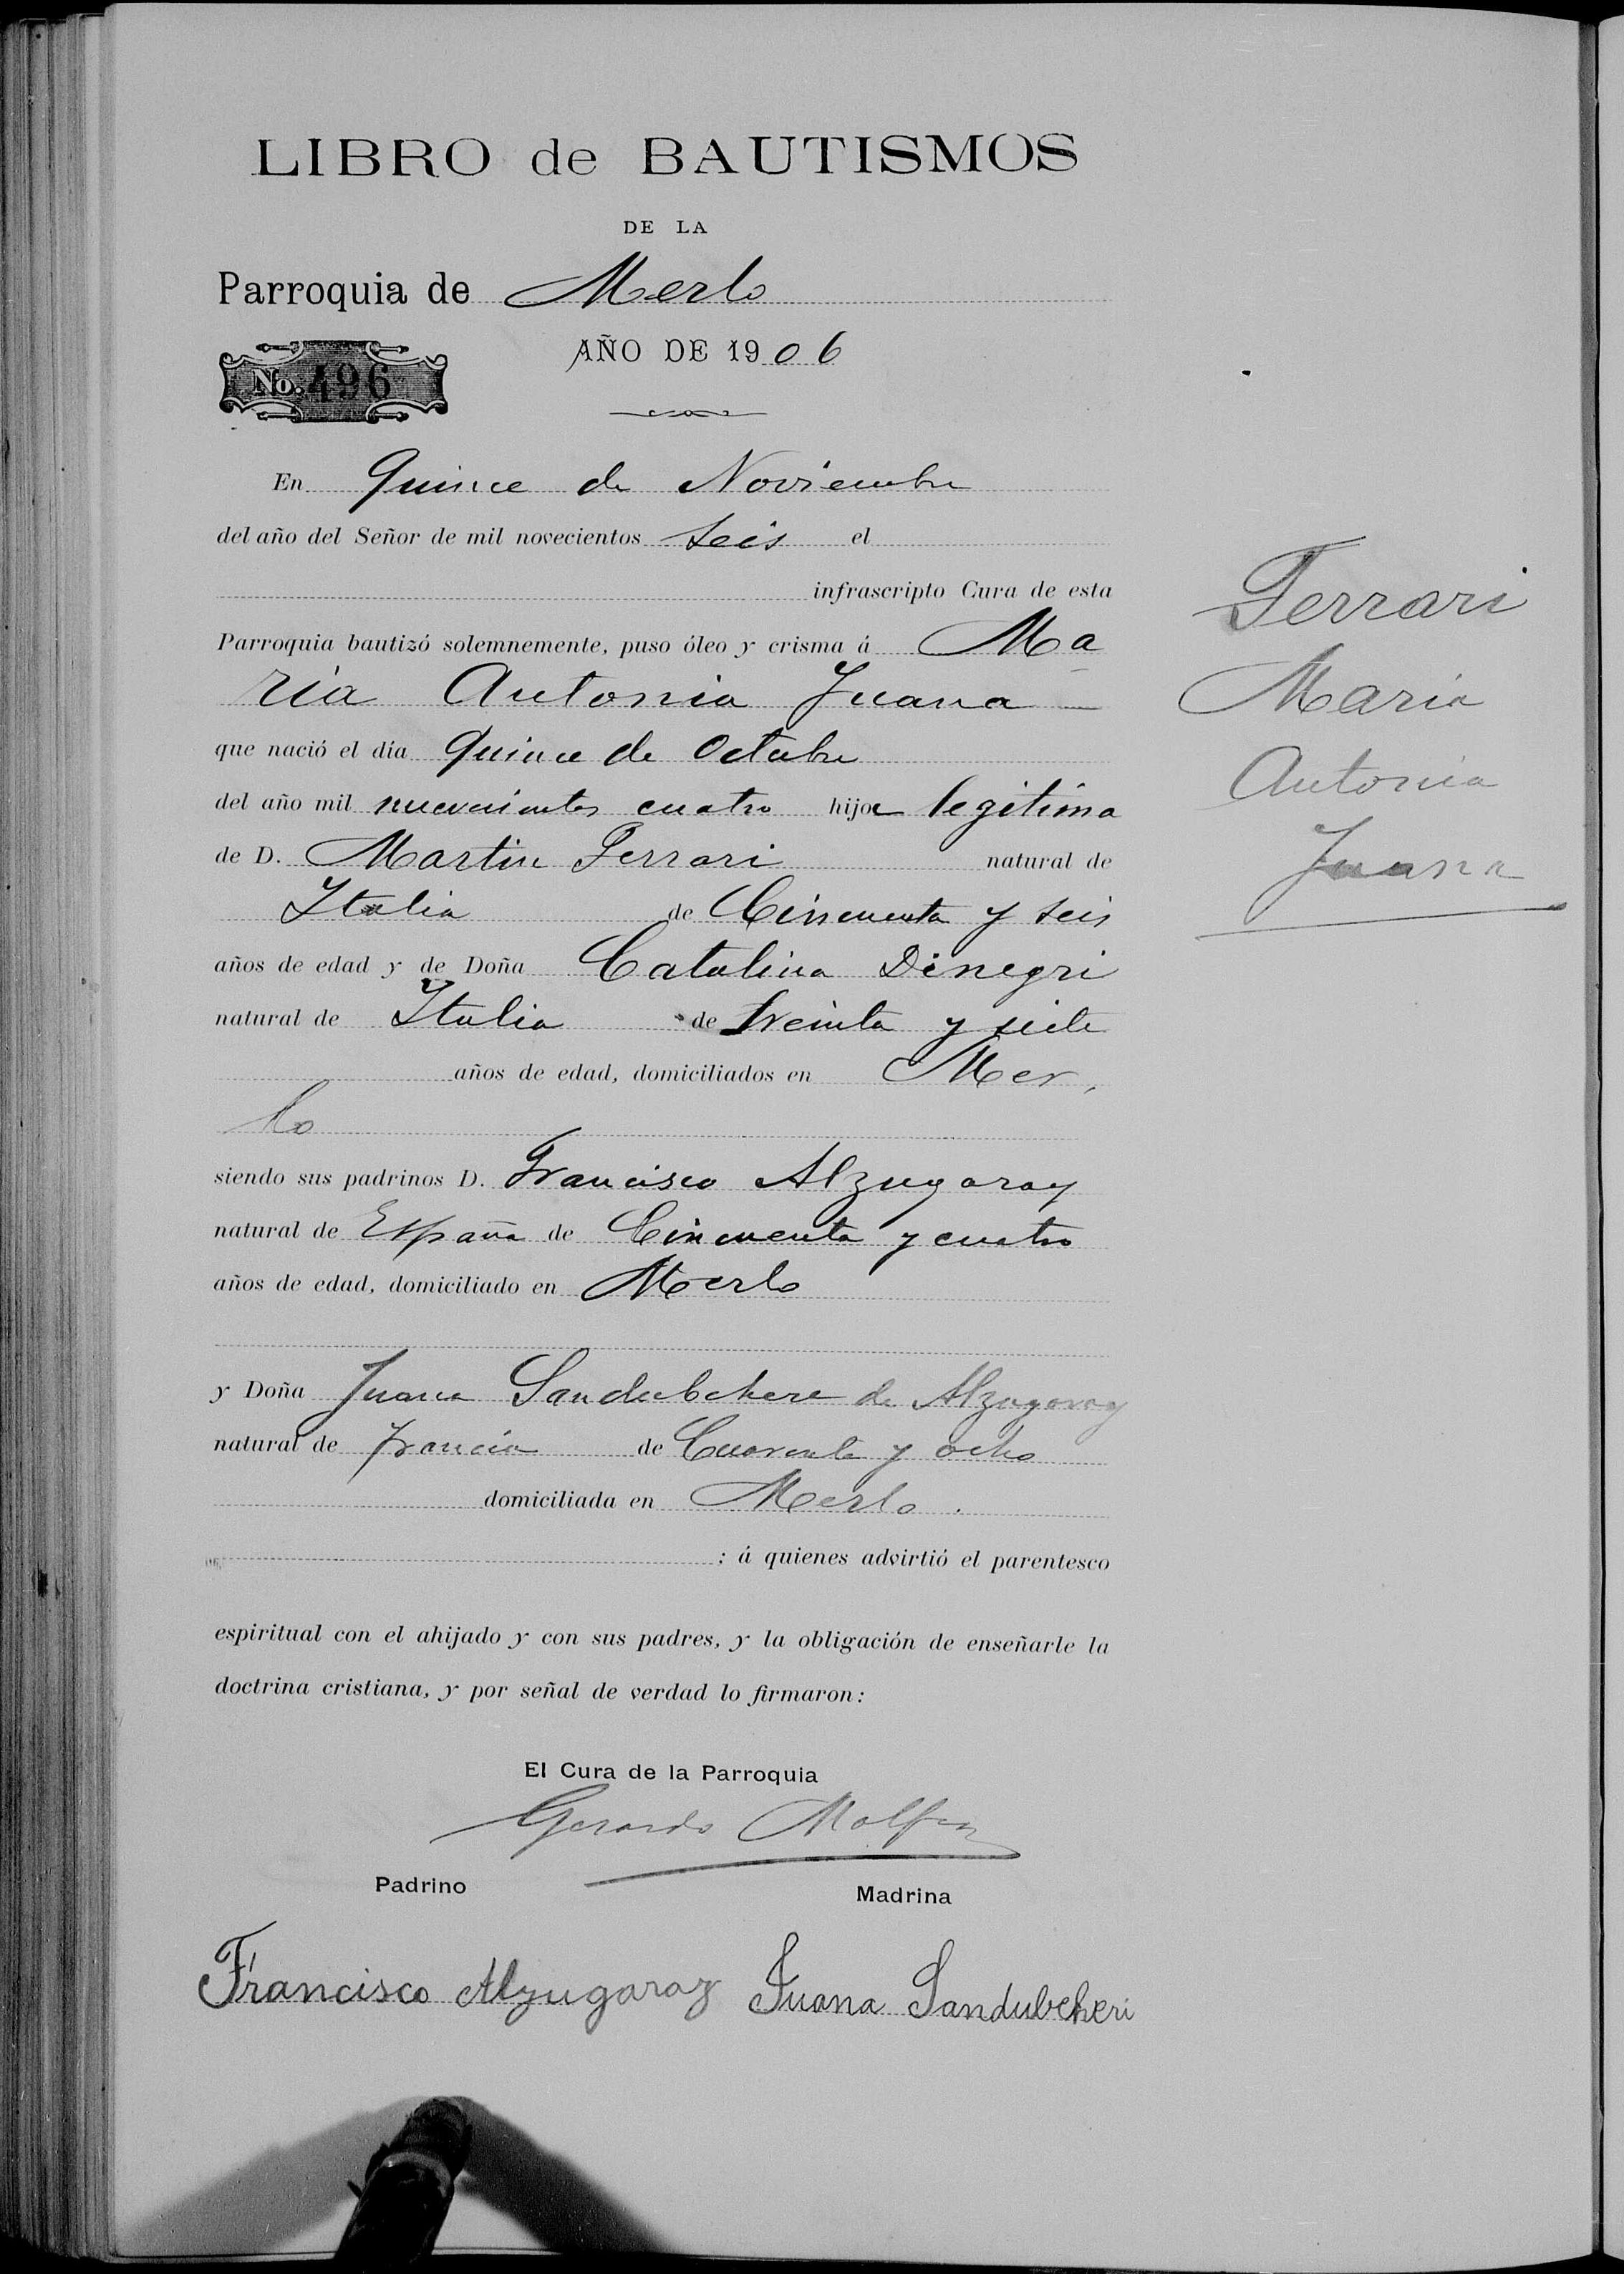 LIBRO de BAUTISMOS
DE LA
Parroquia de Merlo
AÑO DE 1906
No. 496
En Quince de Noviembre
del año del Señor de mil novecientos seis el
infrascripto Cura de esta
Parroquia bautizó solemnemente, puso óleo y crisma á Ma
ria Antonia Juana
que nació el día quince de Octubre
del año mil nuevecientos cuatro hija legitima
de D. Martin Ferrari natural de
Italia de Cincuenta y seis
años de edad y de Doña Catalina Dénegri
natural de Italia de treinta y siete
años de edad, domiciliados en Mer,
lo
siendo sus padrinos D. Francisco Alzugaray
natural de España de Cincuenta y cuatro
años de edad, domiciliado en Merlo
y Doña Juana Sandubehere de Alzugaray
natural de francia de Cuarenta y ocho
domiciliada en Merlo.
: á quienes advirtió el parentesco
espiritual con el ahijado y con sus padres, y la obligación de enseñarle la
doctrina cristiana, y por señal de verdad lo firmaron:
El Cura de la Parroquia
Gerardo
Padrino Madrina
Francisco Alzugaray Juana Sandubeheri
Ferrari
Maria
Antonia
Juana